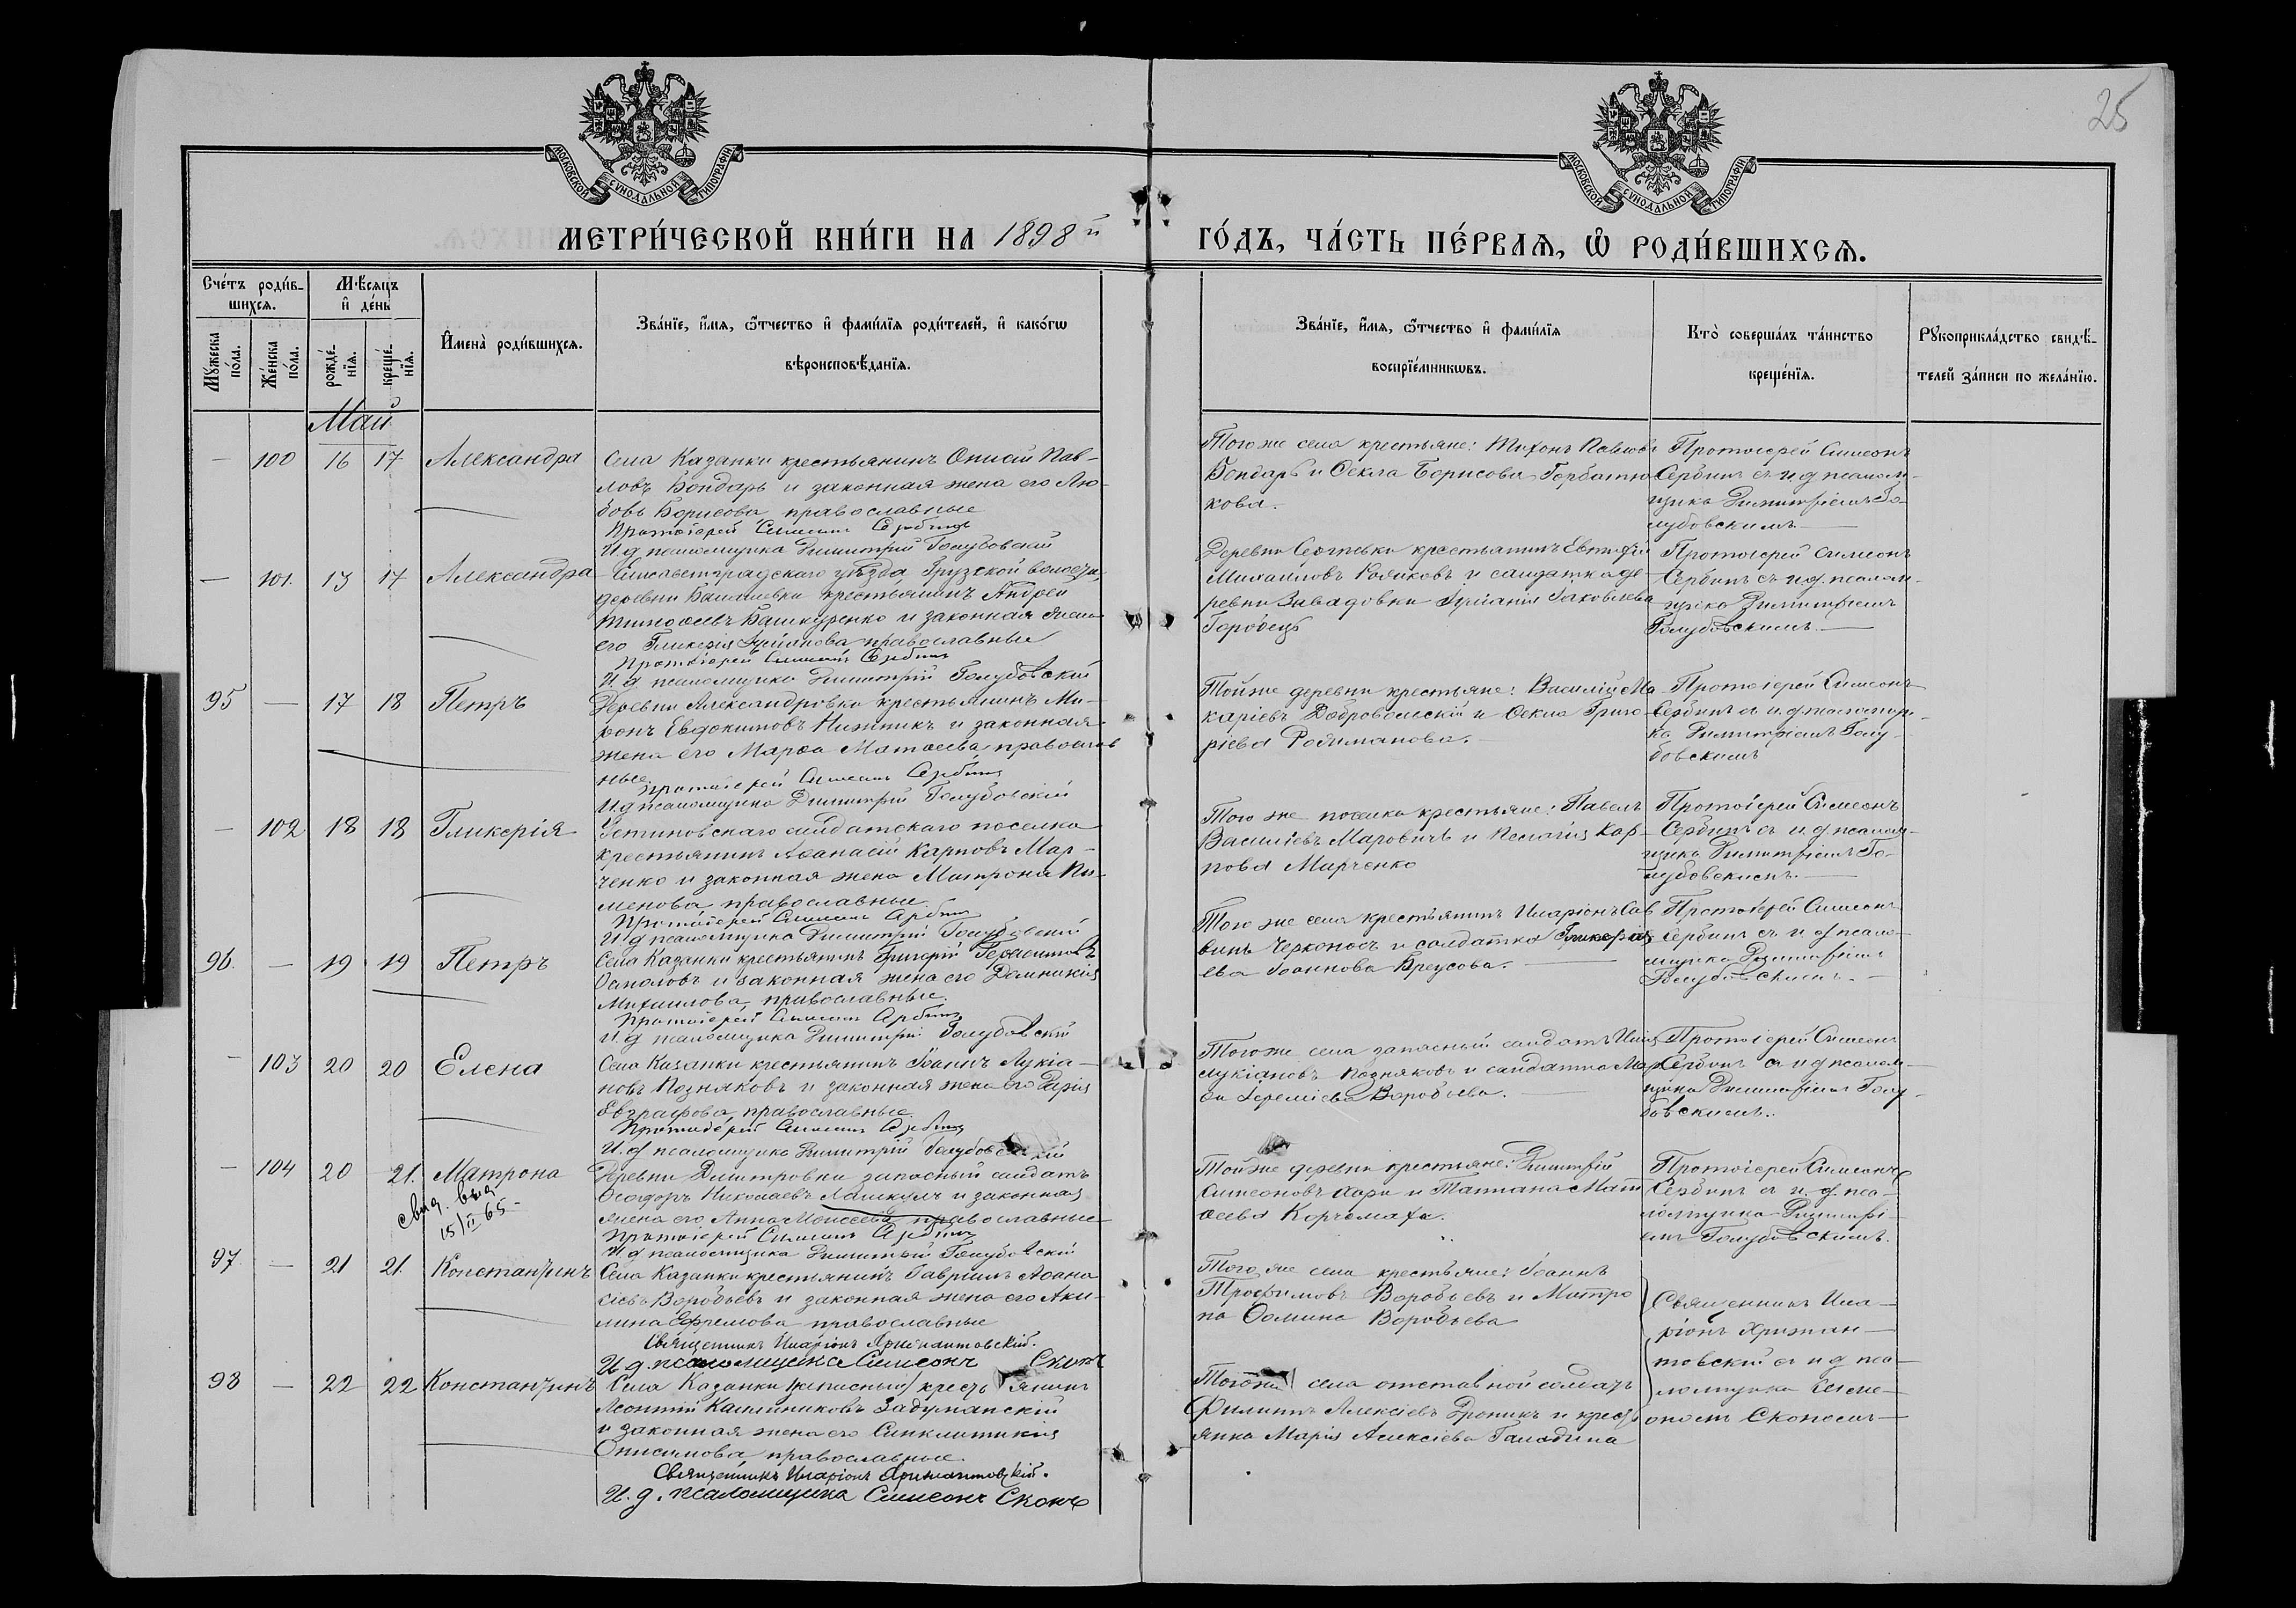 25
МОСКОВСКОЙ СѴНОДАЛЬНОЙ ТИПОГРАФІИ
МОСКОВСКОЙ СѴНОДАЛЬНОЙ ТИПОГРАФІИ
МЕТРИ́ЧЕСКОЙ КНИ́ГИ НА 1898й
ГО́ДЪ, ЧА́СТЬ ПЕ́РВАѦ, Ѿ РОДИ́ВШИХСѦ.
Сче́тъ роди́в-
шихсѧ.
Мꙋжеска по́ла.
Же́нска по́ла.
Мѣ́сяцъ
и҆ де́нь
рожде́-
нїѧ.
креще́-
нїѧ.
И҆мена̀ роди́вшихсѧ.
Зва́нїе, и҆́мѧ, ѻ҆́тчество и҆ фами́лїѧ роди́телей, и҆ како́гѡ
вѣроисповѣ́данїѧ.
Зва́нїе, и҆́мѧ, ѻ҆́тчество и҆ фами́лїѧ
воспрїе́мникѡвъ.
Кто̀ соверша́лъ та́инство
креще́нїѧ.
Рꙋкоприкла́дство свидѣ́-
телей за́писи по жела́нїю.
Май
— 100 16 17 Александра
Села Казанки крестьянинъ Онисій Пав-
ловъ Бондарь и законная жена его Лю-
бовь Борисова православные
Протоіерей Симеонъ Сербинъ
И.д псаломщика Димитрій Голубовскій
Того же села крестьяне: Тихонъ Павловъ
Бондарь и Ѳекла Борисова Горбатю
кова.
Протоіерей Симеонъ
Сербинъ съ и.д псалом-
щика Димитріемъ Го-
лубовскимъ
— 101. 13 17 Александра
Елисаветградскаго уѣзда, Грузской волости,
деревни крестьянинъ Андрей
Тимоѳеевъ Башкуренко и законная жена
его Гликерія православные
Протоіерей Симеонъ Сербинъ
И д псаломщика Димитрій Голубовскій
Деревни Сергѣевки крестьянинъ Евтихій
Михаиловъ и солдатка де-
ревни Завадовки Іаковлева
Городецъ
Протоіерей Симеонъ
Сербинъ съ и.д. псалом-
щика Димитріемъ
Голубовскимъ.
95 — 17 18 Петръ
Деревни Александровки крестьянинъ Ми-
ронъ Евдокимовъ Нижникъ и законная
жена его Марѳа Матѳеева православ
ные
Протоіерей Симеонъ Сербинъ
И.д псаломщика Димитрій Голубовскій
Той же деревни крестьяне: Василій Ма
каріевъ Добровольскій и Ѳекла Григо-
ріева Родиманова.
Протоіерей Симеонъ
Сербинъ съ и.д. псаломщи-
ка Димитріемъ Голу-
бовскимъ
— 102 18 18 Гликерія
Устиновскаго солдатскаго поселка
крестьянинъ Аѳанасій Карповъ Мар-
ченко и законная жена Матрона Пи-
менова православные
Протоіерей Симеонъ Сербинъ
И д псаломщика Димитрій Голубовскій
Того же поселка крестьяне: Павелъ
Василіевъ Маровичъ и Пелагія Кар-
пова Марченко
Протоіерей Симеонъ
Сербинъ съ и.д. псалом-
щика Димитріемъ Го-
лубовскимъ.
96. — 19 19 Петръ
Села Казанки крестьянинъ Григорій Герасимовъ
и законная жена его Домникія
Михаилова, православные.
Протоіерей Симеонъ Сербинъ
И.д псаломщика Димитрій Голубовскій
Того же села крестьянинъ Иларіонъ Сав
винъ и солдатка
Іоаннова Бреусова.
Протоіерей Симеонъ
Сербинъ съ и д псало-
мщика Димитріемъ
Голубовскимъ.
— 103 20 20 Елена
Села Казанки крестьянинъ Іоаннъ Лукіа-
новъ Позняковъ и законная жена его Дарія
Евграфова, православные.
Протоіерей Симеонъ Сербинъ
И.д псаломщика Димитрій Голубовскій
Того же села запасный солдатъ Илія
Лукіановъ Позняковъ и солдатка Мар
Іереміева Воробьева.
Протоіерей Симеонъ
Сербинъ съ и д псалом-
щика Димитріемъ Голу-
бовскимъ.
— 104 20 21. Матрона
свид. выд.
15/II 65-
Деревни Димитровки запасный солдатъ
Ѳеодоръ Николаевъ и законная
жена его Анна Моисеева православные
Протоіерей Симеонъ Сербинъ
И д псаломщика Димитрій Голубовскій
Той же деревни крестьяне: Димитрій
Симеоновъ и Татіана Мат
ѳеева Корчемаха.
Протоіерей Симеонъ
Сербинъ съ и. д. пса-
ломщика Димитрі-
емъ Голубовскимъ.
97 — 21 21. Константинъ
Села Казанки крестьянинъ Гавріилъ Аѳана
сіевъ Воробьевъ и законная жена его Аки-
лина Ефремова православные
Священникъ Иларіонъ
И д. псаломщика Симеонъ Сконъ
Того же села крестьяне: Іоаннъ
Трофимовъ Воробьевъ и Матро
на Ѳомина Воробьева
Священникъ Ила-
ріонъ
съ и д пса-
ломщика Симе-
ономъ
98 — 22 22 Константинъ
Села Казанки крестьянинъ
Леонтій Калинниковъ Задуманскій
и законная жена его Синклитикія
Онисимова православные.
Священникъ Иларіонъ
И. д. псаломщика Симеонъ Сконъ
Того же села отставной солдатъ
Филиппъ Алексіевъ Дроникъ и кресть
янка Марія Алексіева